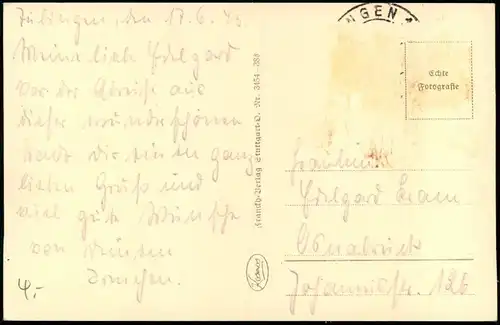 Tübingen, den 17.6.43.
Meine liebe Edelgard
vor der Abreise aus
dieser wunderschönen
Stadt Dir einen ganz
lieben Gruß und
viel gute Wünsche
von Deinem
4,-
Franckh-Verlag Stuttgart-O. Nr. 3454
Kosmos
NGEN
Echte
Fotografie
Fräulein
Edelgard
Osnabrück
Johannisstr. 126